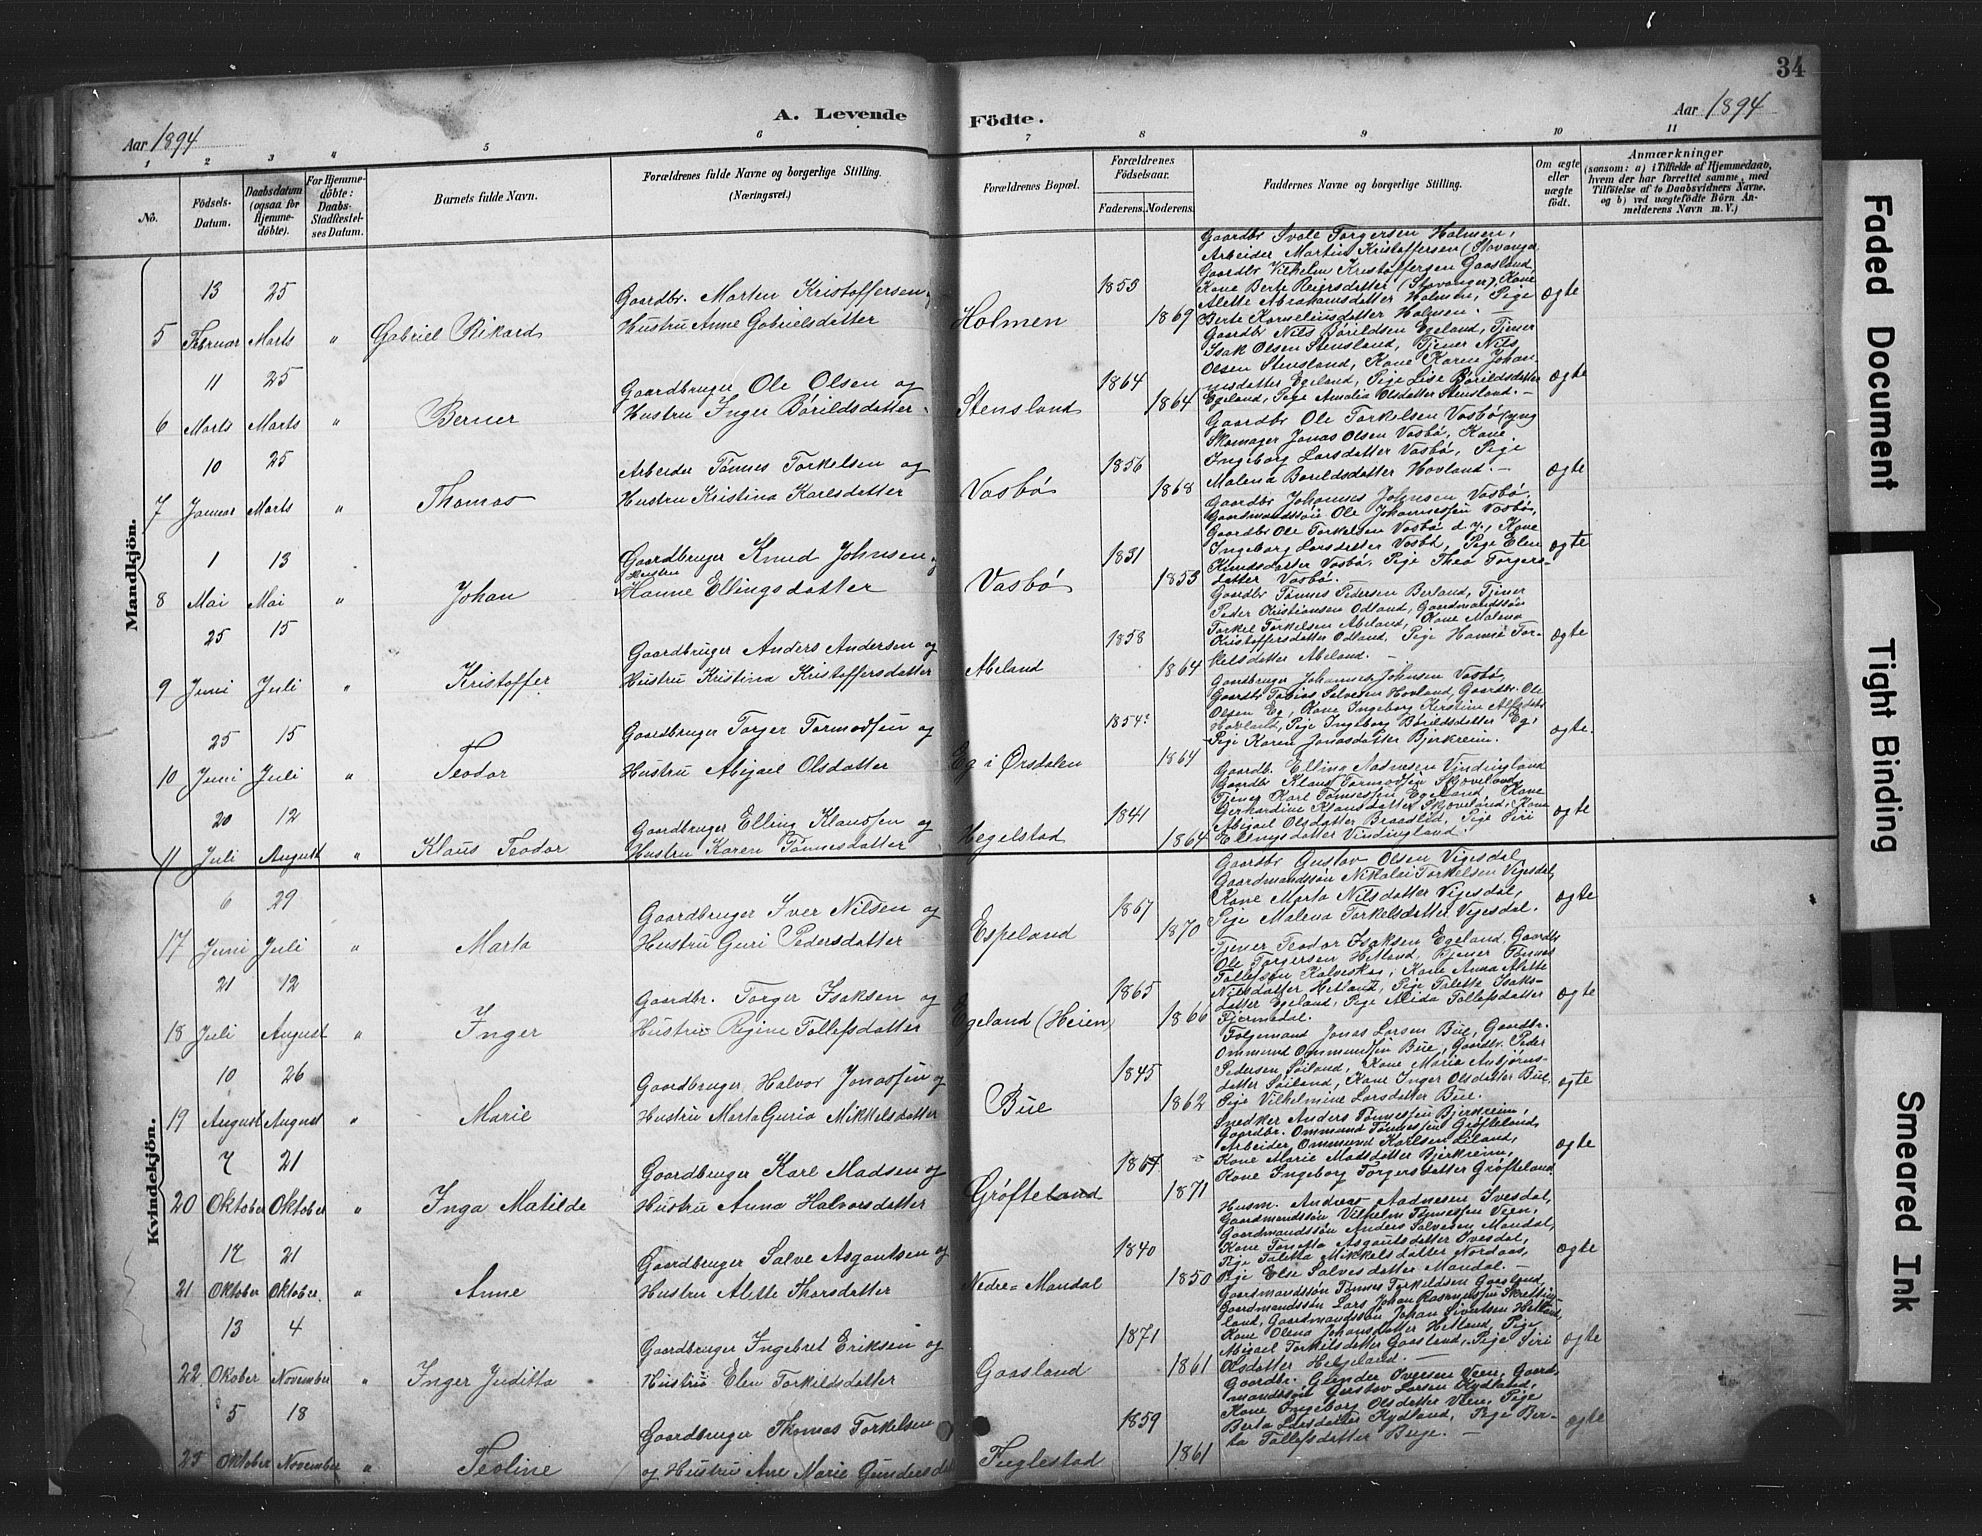 34
A. Levende Födte.
Aar 1894
Aar 1894
1 2 3 4 5 6 7 8 9 10 11
No.
Födsels-Datum.
Daabsdatum (ogsaa for Hjemmedöbte).
For Hjemmedöbte: Daabs-Stadfestelses Datum.
Barnets fulde Navn.
Forældrenes fulde Navne og borgerlige Stilling.
(Næringsvei.)
Forældrenes Bopæl.
Forældrenes Födselsaar.
Faderens. Moderens.
Faddernes Navne og borgerlige Stilling.
Om ægte eller uægte födt.
Anmærkninger
(saasom: a) i Tilfælde af Hjemmedaab, hvem der har forrettet samme, med Tilföielse af to Daabsvidners Navne, og b) ved uægtefödte Börn Anmelderens Navn m. V.)
Mandkjön.
5 13 Februar 25 Marts " Gabriel Rikard
Gaardbr. Morten Kristoffersen og
Hustru Anne Gabrielsdatter
Holmen 1853 1869
Gaardbr Svale Torgersen Holmen,
Arbeider Martin Kristoffersen (Stavanger
Gaardbr Vilhelm Kristoffersen Gaasland,
Kone Berte Reiersdatter (Stavanger), Kone
Alette Abrahamsdatter Holmen, Pige
Berte Korneliusdatter Holmen. —
ægte
6 11 Marts 25 Marts " Berner
Gaardbruger Ole Olsen og
Hustru Inger Börildsdatter
Stensland 1864 1864
Gaardbr Nils Börildsen Egeland, Tjener
Isak Olsen Stensland, Tjener Nils
Olsen Stensland, Kone Karen Johan
nisdatter Egeland, Pige Lise Börildsdatter
Egeland, Pige Amalia Olsdatter Stensland. —
ægte
7 10 Januar 25 Marts " Thomas
Arbeider Tönnes Torkelsen og
Hustru Kristina Karlsdatter
Vasbö 1856 1868
Gaardbr Ole Torkelsen Vasbö (yng
Skomager Jonas Olsen Vasbö, Kone
Ingeborg Larsdatter Vasbö, Pige
Malena Borildsdatter Hovland. —
ægte
8 1 Mai 13 Mai " Johan
Gaardbruger Knud Johnsen og
Hustru
Hanne Ellingsdatter
Vasbö 1831 1853
Gaardbr Johannes Johnsen Vasbö,
Gaardmandssön Ole Johannessen Vasbö,
Gaardbr Ole Torkelsen Vasbö d. y., Kone
Ingeborg Larsdatter Vasbö, Pige Elen
Knudsdatter Vasbö, Pige Thea Torgers-
datter Vasbö.
ægte
9 25 Juni 15 Juli " Kristoffer
Gaardbruger Anders Andersen og
Hustru Kristina Kristoffersdatter
Abeland 1858 1864
Gaardbr Tönnes Pedersen Berland, Tjener
Peder Kristiansen Odland, Gaardmandssön
Torkel Torkelsen Abeland, Kone Malena
Kristoffersdatter Odland, Pige Hanne Tor-
kelsdatter Abeland. —
ægte
10 25 Juni 15 Juli " Teodor
Gaardbruger Torger Tormodsen og
Hustru Abigael Olsdatter
Eg i Ørsdalen 1854 1864
Gaardbruger Johannes Johnsen Vasbö,
Gaardbr Tobias Salvesen Hovland, Gaardbr. Ole
Olsen Eg, Kone Ingeborg Kirstine
Pige Ingeborg Börildsdatter Eg,
Pige Karen Jonasdatter Bjerkreim.
ægte.
11 20 Juli 12 August " Klaus Teodor
Gaardbruger Elling Klausen og
Hustru Karen Tönnesdatter
Hegelstad 1841 1864
Gaardb. Elling Aadnesen Vindingland
Gaardbr Klaus Tormodsen Skjæveland
Tjener Karl Tönnessen Egeland, Kone
Gerhardine Klausdatter Skjæveland, Kone
Abigael Olsdatter Braadlid, Pige Siri
Ellingsdatter Vindingland.
ægte
Kvindekjön.
17 6 Juni 29 Juli " Marta
Gaardbruger Iver Nilsen og
Hustru Guri Pedersdatter
Espeland 1867 1870
Gaardbr Gustav Olsen Vigesdal
Gaardmandssön Nikolai Torkelsen Vigesdal,
Kone Marta Nilsdatter Vigesdal,
Pige Malena Torkelsdatter Vigesdal.
ægte
18 21 Juli 12 August " Inger
Gaardbr. Torger Isaksen og
Hustru Regine Tollefsdatter
Egeland (Heien) 1865 1866
Tjener Teodor Isaksen Egeland, Gaardbr
Ole Torgersen Hetland, Tjener Tönnes
Tollefsen Kalveskag, Kone Anna Alette
Nilsdatter Hetland, Pige Talette Isaks-
datter Egeland, Pige Alida Tollefsdatter
Fjermedal.
ægte
19 10 August 26 August " Marie
Gaardbruger Halvor Jonassen og
Hustru Marta Guria Mikkelsdatter
Bue 1845 1862
Folgemand Jonas Larsen Bue, Gaardbr.
Ommund Ommundsen Bue, Gaardbr. Peder
Pedersen Söiland, Kone Marie Asbjörns-
datter Söiland, Kone Inger Olsdatter Bue,
Pige Vilhelmine Larsdatter Bue.
ægte
20 7 Oktober 21 Oktober " Inga Matilde
Gaardbruger Karl Madsen og
Hustru Anna Halvorsdatter
Gröfteland 1864 1871
Snedker Anders Tönnessen Bjerkreim,
Gaardbr. Ommund Tönnessen Gröfteland,
Arbeider Ommund Karlsen Eiland,
Kone Marie Madsdatter Bjerkreim,
Kone Ingeborg Torgersdatter Gröfteland
ægte
21 17 Oktober 21 Oktober. " Anne
Gaardbruger Salve Asgautsen og
Hustru Alette Thorsdatter
Nedre-Mandal 1840 1850
Husm. Andreas Aadnesen Ivesdal,
Gaardmandssön Vilhelm Tönnessen Veen,
Gaardmandssön Anders Salvesen Mandal,
Kone Tonetta Asgautsdatter Ivesdal,
Pige Taletta Mikkelsdatter Nordaas,
Pige Else Salvesdatter Mandal. —
ægte
22 13 Okober 4 November " Inger Juditta
Gaardbruger Ingebret Eriksen og
Hustru Elen Torkildsdatter
Gaasland 1871 1861
Gaardmandssön Tönnes Torkildsen Gaasland,
Gaardmandssön Lars Johan Rasmussen Skretting-
land, Gaardmandssön Johan Sivertsen Hetland,
Kone Olena Johansdatter Hetland, Pige
Abigael Torkilsdatter Gaasland, Pige Siri
Olsdatter Helgeland. —
ægte
23 5 Oktober 18 November " Teoline
Gaardbruger Thomas Torkelsen
og Hustru Ane Marie Gunders
Fuglestad 1859 1861
Gaardbr. Gunder Iversen Veen, Gaard-
mandssön Gustav Larsen Rydland,
Kone Ingeborg Olsdatter Veen, Pige
Berta Larsdatter Rydland, Pige Ber-
ta Tollefsdatter Bue. —
ægte
Faded Document
Tight Binding
Smeared Ink